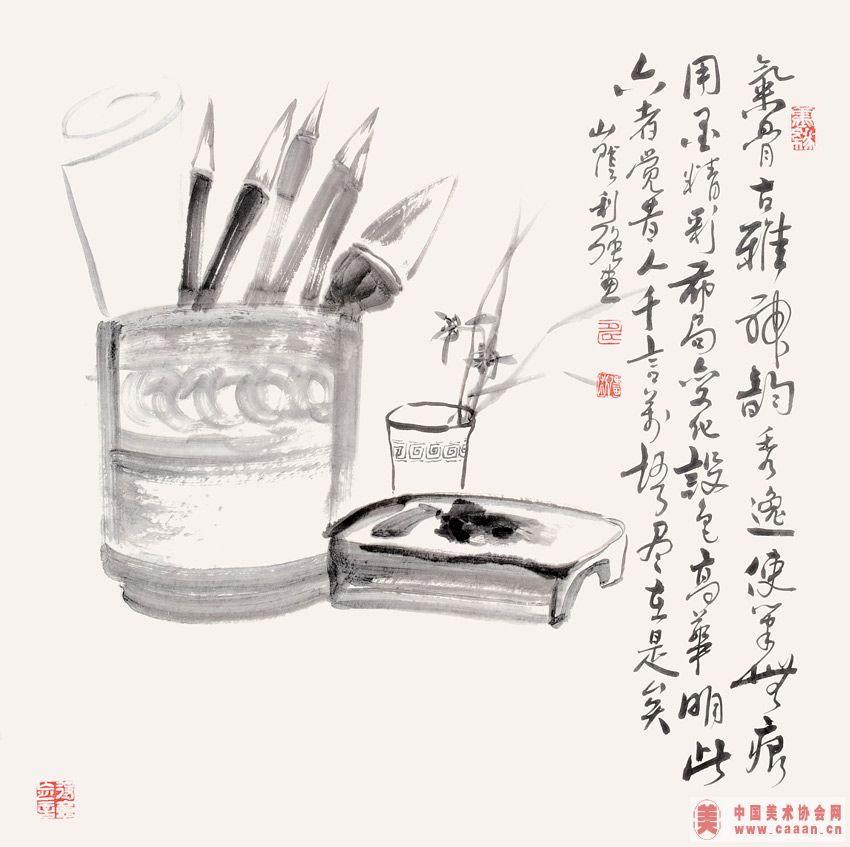 氣骨古雅神韵秀逸使筆無痕
用墨精彩布局變化設色高華明此
六者覺昔人千言萬語盡在是矣
山陰利強畫
美 中国美术协会网
www.caaan.cn